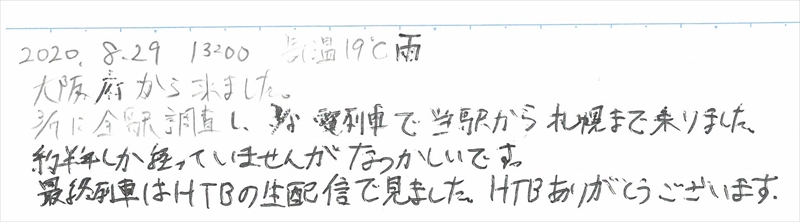 2020. 8.29 13:00 気温19℃ 雨
大阪府から来ました。
3/7に全駅調査し、 列車で当駅から札幌まで乗りました。
約半年しか経っていませんがなつかしいです。
最終列車はHTBの生配信で見ました。HTBありがとうございます.